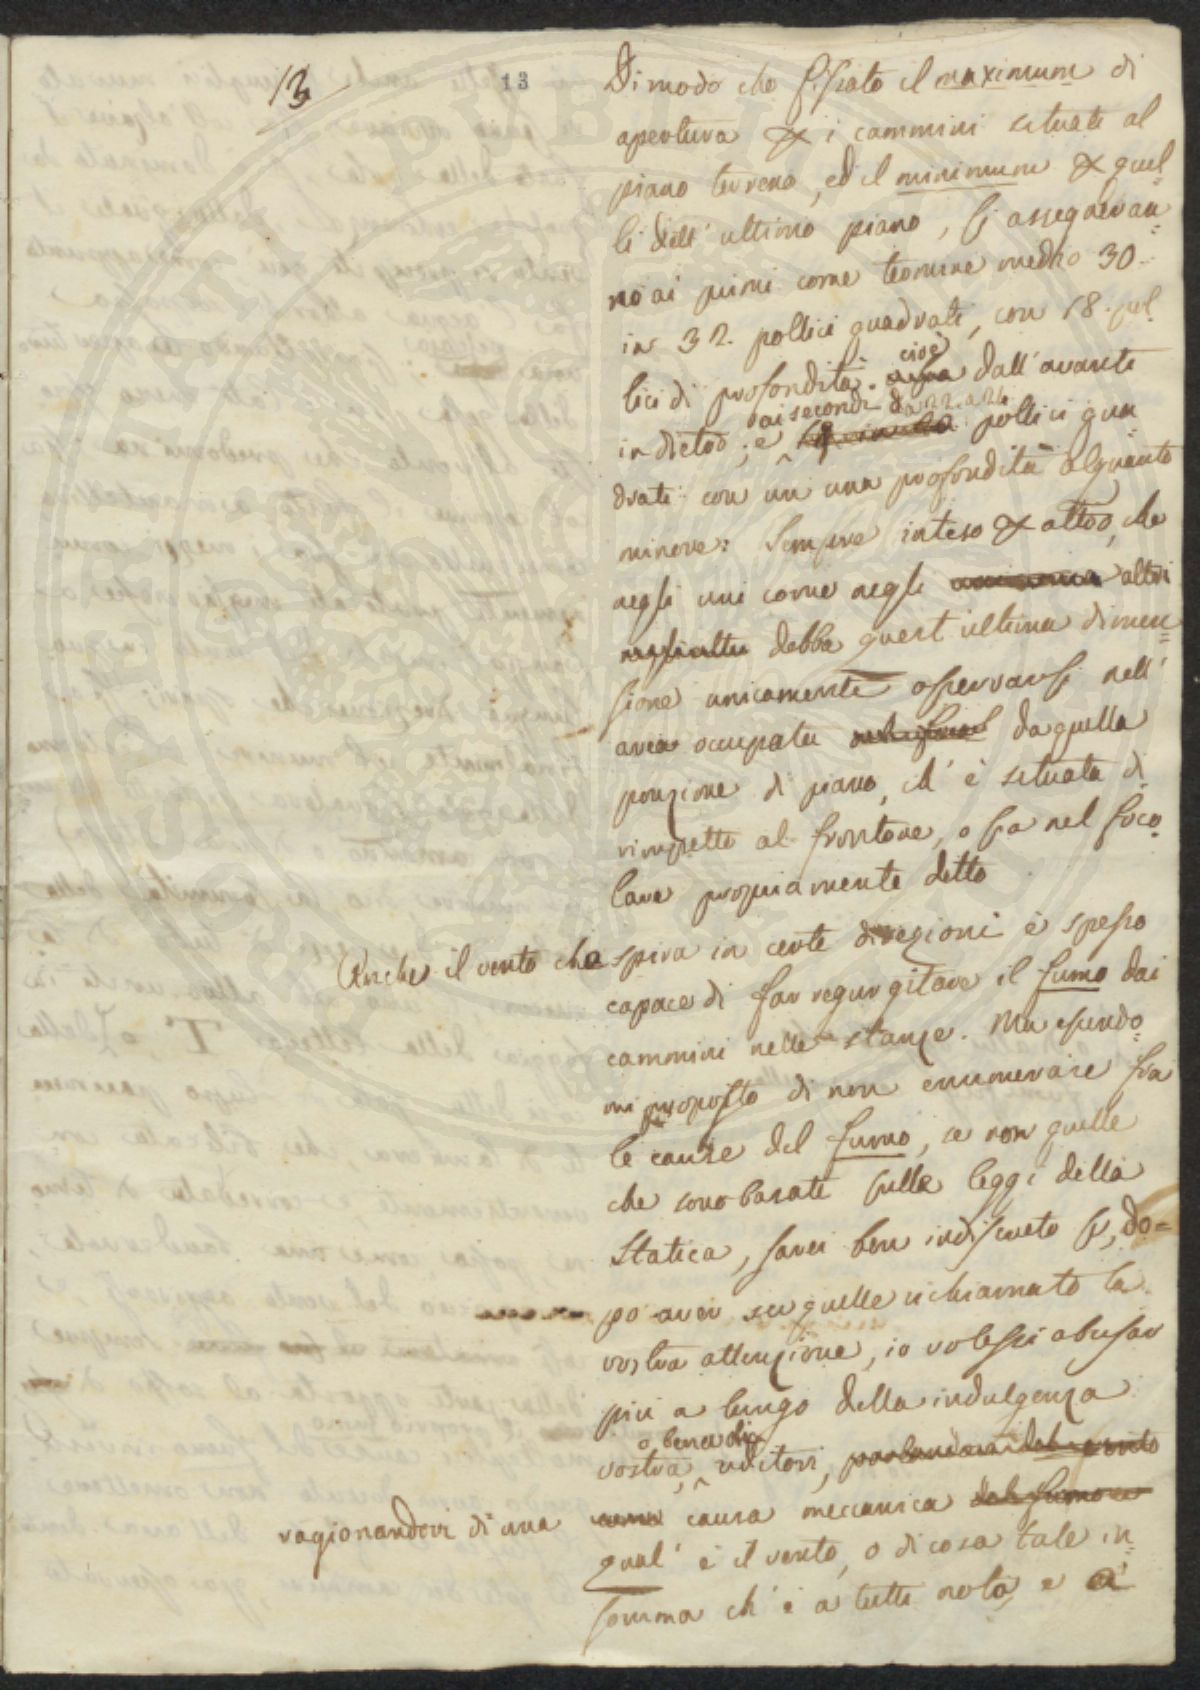 13
13
Di modo che fissato il maximum di
apertura per i cammini situati al
piano terreno, ed il minimum per quel=
li dell' ultimo piano, si assegneran=
no ai primi come termine medio 30.
in 32. pollici quadrati, con 18. pol=
lici di profondità. cioè dall' avanti
indietro; e ai secondi da 22. a 24. pollici qua=
drati con un una profondità alquanto
minore: sempre inteso per altro, che
negli uni come negli altri
negli altri debba quest' ultima dimen=
sione unicamente osservarsi nell'
area occupata da quella
porzione di piano, ch' è situata di=
rimpetto al frontone, o sia nel foco=
lare propriamente detto
Anche il vento che spira in certe direzioni è spesso
capace di far regurgitare il fumo dai
cammini nelle stanze. Ma essendo=
mi proposto di non enumerare fra
le cause del fumo, se non quelle
che sono basate sulle leggi della
Statica, sarei ben indiscreto se, do=
po aver su quelle richiamato la
vostra attenzione, io volessi abusar
più a lungo della indulgenza
vostra, o benevoli uditori, parlandovi del vento
ragionandovi di una come causa meccanica del fumo
qual' è il vento, o di cosa tale in=
somma ch' è a tutti nota, e a